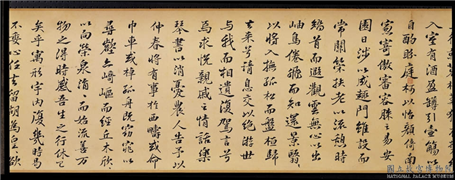 入室有酒盈罇引壺觴以
自酌眄庭柯以怡顏倚南
窗寄傲審容膝之易安
園日涉以成趣門雖設而
常關策扶老以流憩時
矯首而遐觀雲無心以出
岫鳥倦飛而知還景翳
以將入撫孤松而盤桓歸
去來兮請息交以絕遊世
與我而相遺復駕言兮
焉求悅親戚之情話樂
琴書以消憂農人告予以
仲春將有事於西疇或命
巾車或棹孤舟既窈窕以
尋壑亦崎嶇而經丘木欣
以向榮泉涓而始流善万
物之得時感吾生之行休已
矣乎寓形宇內復幾時曷
不委心任去留胡為欲
國立故宮博物院
NATIONAL PALACE MUSEUM